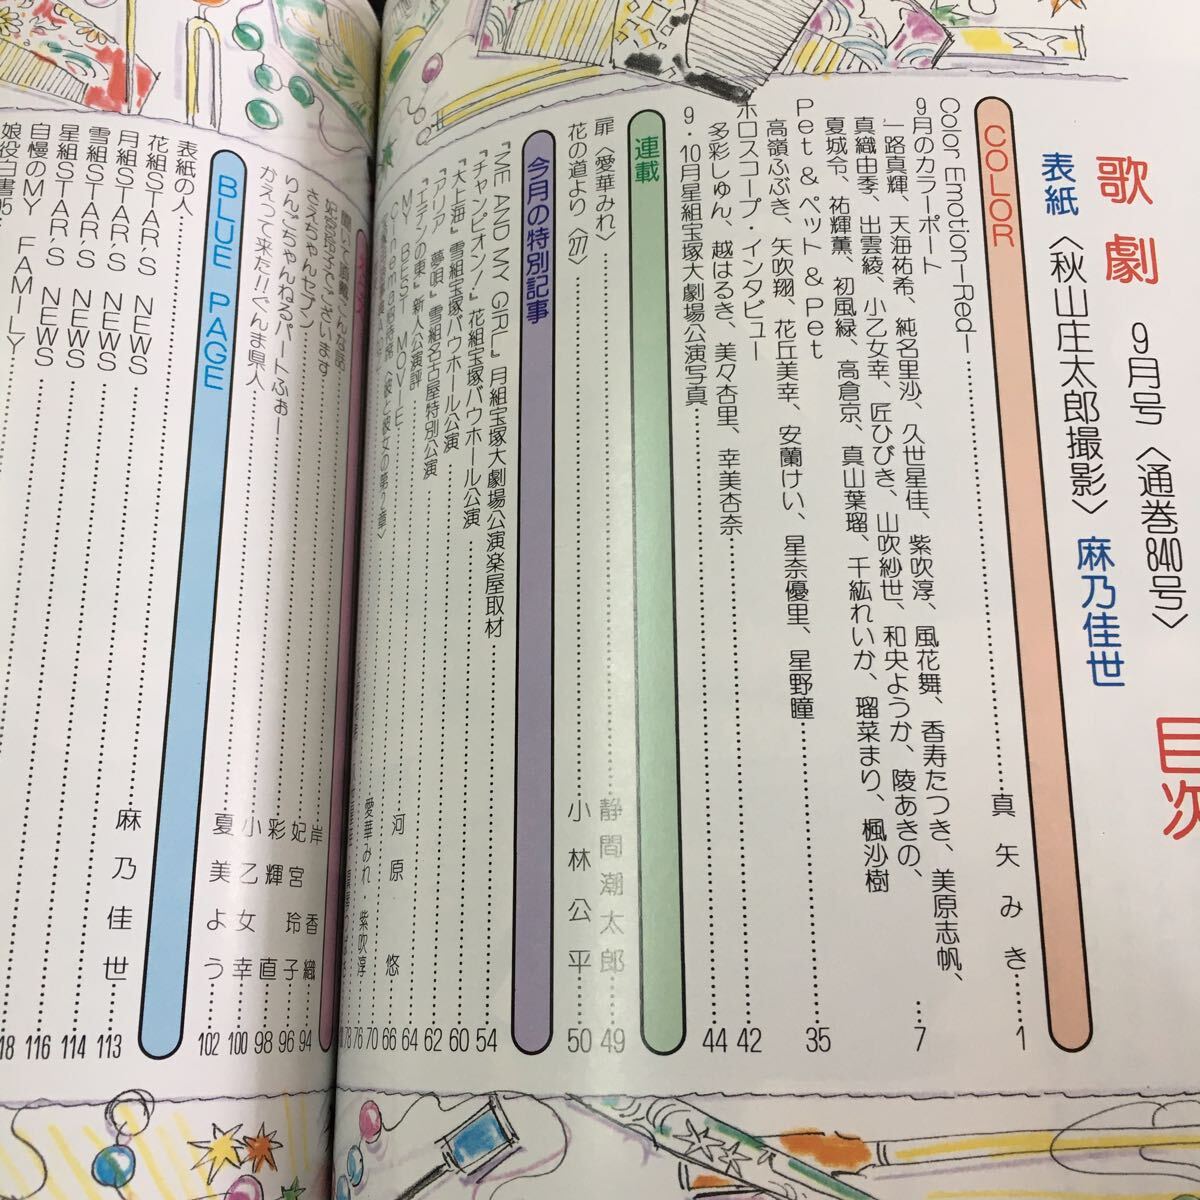 歌劇 9月号〈通巻840号〉 目次
表紙〈秋山庄太郎撮影〉麻乃佳世
COLOR
Color Emotion—Red—……真矢みき…1
9月のカラーポート
一路真輝、天海祐希、純名里沙、久世星佳、紫吹淳、風花舞、香寿たつき、美原志帆、
真織由季、出雲綾、小乙女幸、匠ひびき、山吹紗世、和央ようか、陵あきの、
夏城令、祐輝薫、初風緑、高倉京、真山葉瑠、千紘れいか、瑠菜まり、楓沙樹
……7
Pet & ペット & Pet
高嶺ふぶき、矢吹翔、花丘美幸、安蘭けい、星奈優里、星野瞳……35
ホロスコープ・インタビュー
多彩しゅん、越はるき、美々杏里、幸美杏奈……42
9・10月星組宝塚大劇場公演写真……44
連載
扉〈愛華みれ〉……静間潮太郎…49
花の道より〈21〉……小林公平…50
今月の特別記事
『ME AND MY GIRL』月組宝塚大劇場公演楽屋取材……54
『チャンピオン!』花組宝塚バウホール公演……60
『大上海』雪組宝塚バウホール公演……62
『アリア 夢唄』雪組名古屋特別公演……64
『エデンの東』新人公演評……河原 悠…66
MY BEST MOVIE……70
〈彼と彼女の第2章〉……愛華みれ、紫吹淳…76
78
岸 香織…94
妃宮玲子でございます……妃宮玲子…96
さえちゃんセブン……彩輝 直…98
りんごちゃんねるパートふぉー……小乙女幸…100
かえって来た!!ぐんま県人……夏美よう…102
BLUE PAGE
表紙の人……麻乃佳世…113
花組STAR'S NEWS……114
月組STAR'S NEWS……116
雪組STAR'S NEWS
星組STAR'S NEWS
自慢のMY FAMILY
娘役白書'95